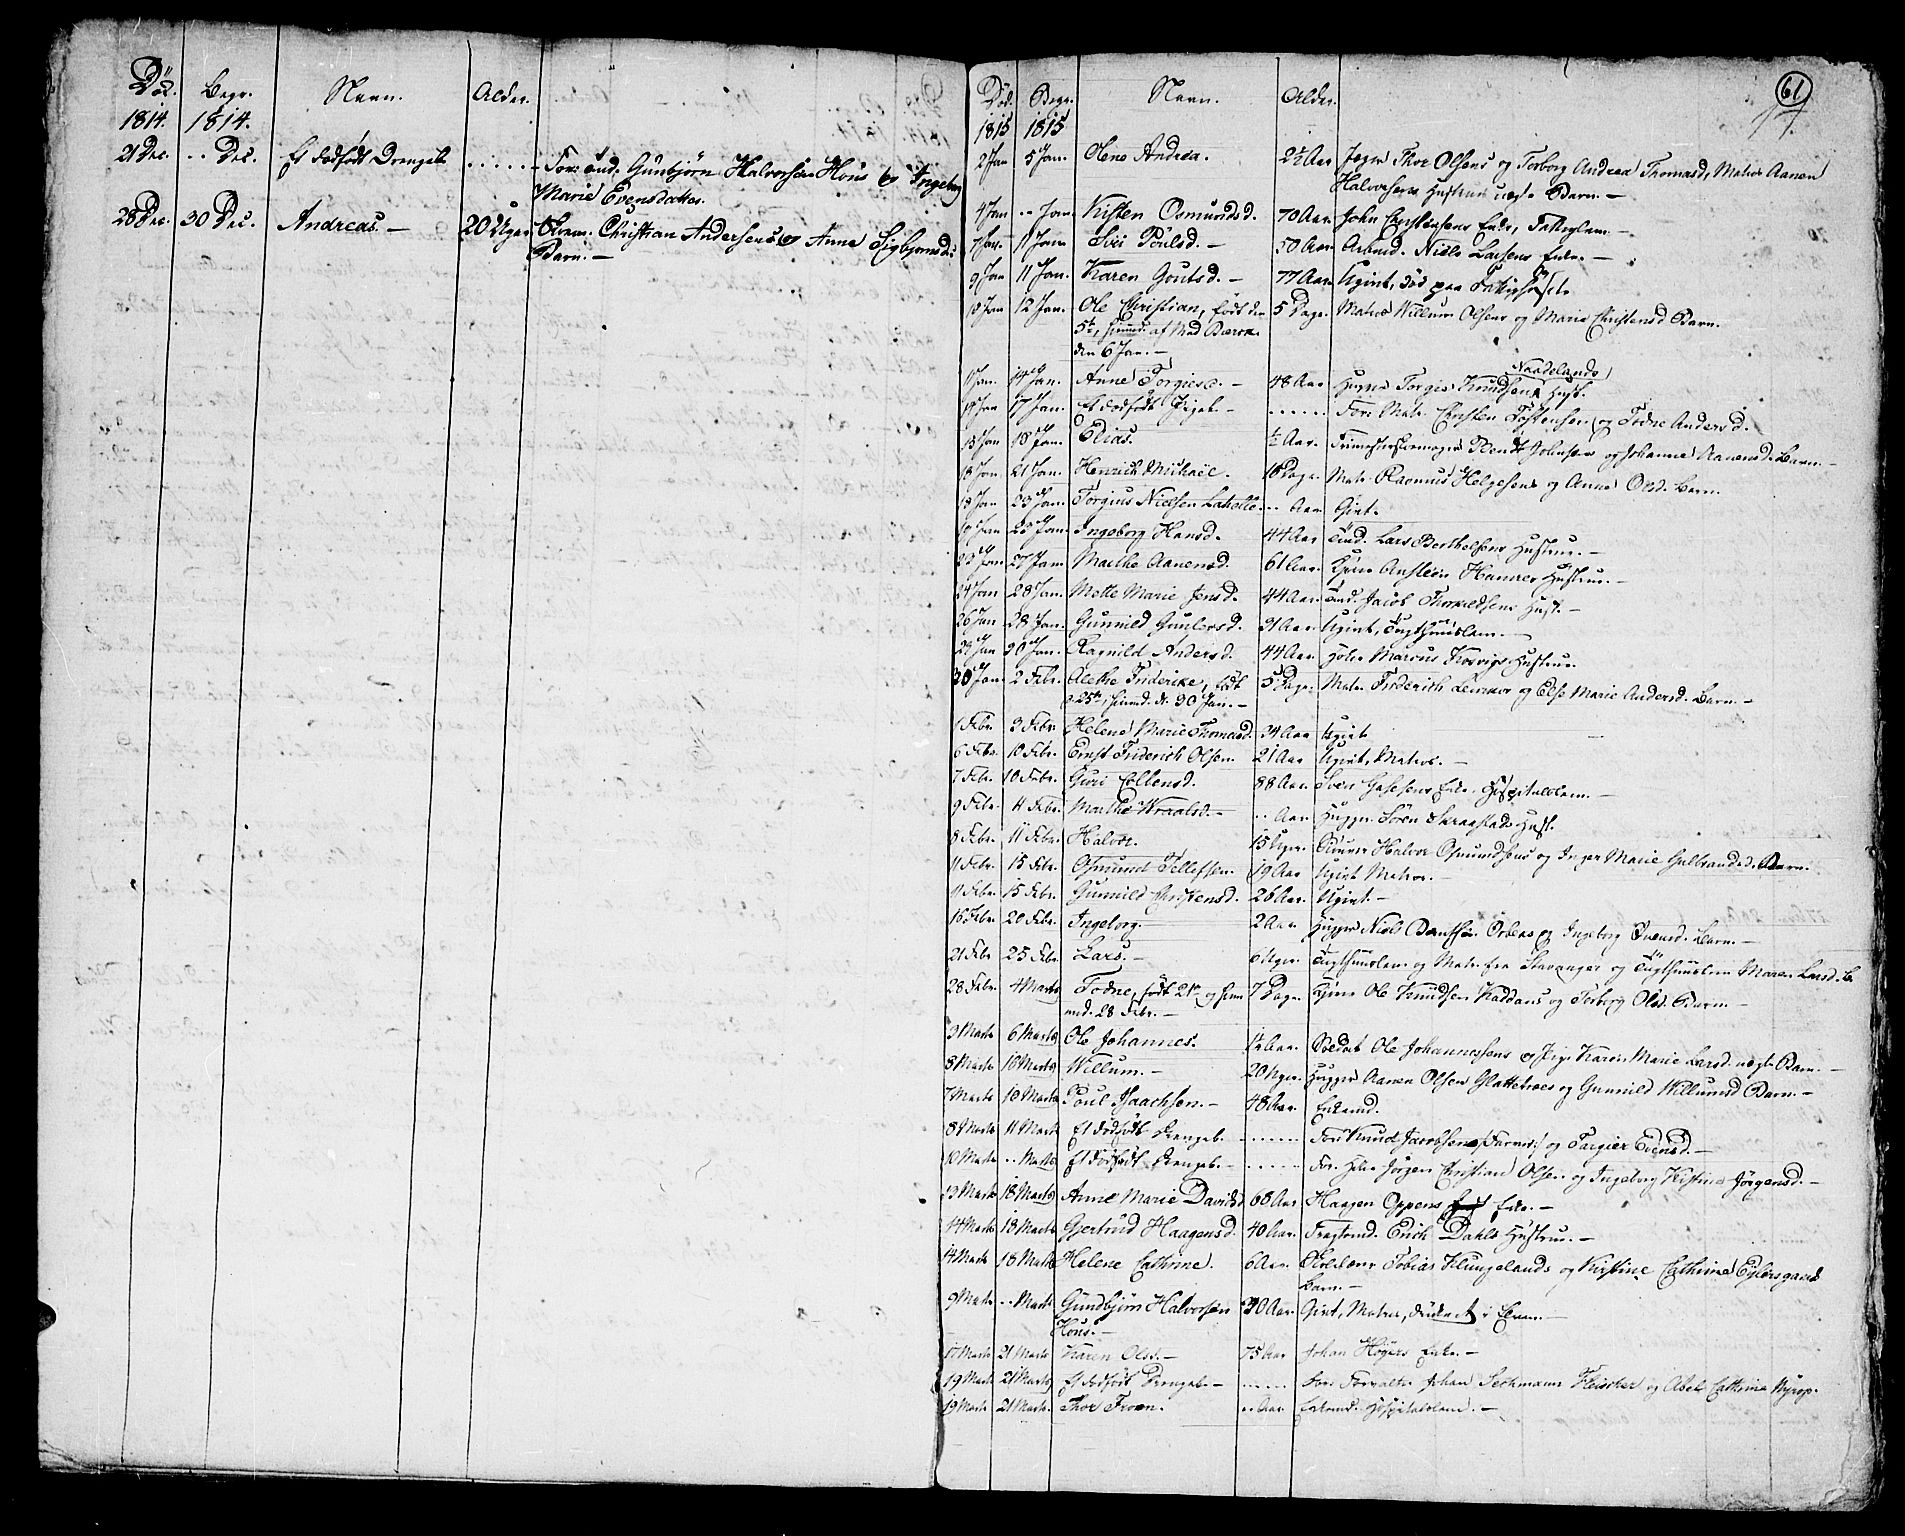 Död. Begr. Navn. Alder.
1814. 1814.
21 Dec. .. Dec. Et dødfødt Drengeb. ...... For: Gunbjörn Halvorsen Hous og Ingeborg
Marie Evensdatter.
28 Dec. 30 Dec. Andreas. — 20 Uger Christian Andersens og Anne Sigbjørnsd:
Barn. —
61
Död. Begr. Navn. Alder.
1815 1815
2 Jan 5 Jan. Olene Andrea. 2½ Aar Thor Olsens og Torborg Andrea Thomasd, Matros Aanen
Halvorsens Hustrues uægte Barn. —
4 Jan .. Jan. Kirsten Osmundsd. 70 Aar. John Christensens Enke, Fattiglem. —
7 Jan. 11 Jan. Siri Poulsd. — 50 Aar. Arbmd. Niels Larsens Enke. —
9 Jan 11 Jan. Karen Goutsd. — 77 Aar. Ugivt, død paa Fattighuset.
10 Jan 12 Jan. Ole Christian, født den 5 Dage. Matros Willum Olsens og Marie Christensd Barn.
5te, hjemmd. af Mad
den 6 Jan. —
14 Jan. Anne Torgiesd. — 48 Aar Torgies Knudsen Naadelands Hust.
17 Jan. Et dødfødt Pigeb. — ...... For: Matr. Christen Tostensen og Todne Andersd.
13 Jan 18 Jan. Elias. ½ Aar. Bendt Johnsens og Johanne Aanensd. Barn. —
18 Jan 21 Jan. Henrich Michael. 16 Dage. Matr. Rasmus Helgesens og Anne Olsd. Barn.
18 Jan 23 Jan. Torgius Nielsen .. Aar Givt.
19 Jan 23 Jan. Ingeborg Hansd. 44 Aar Lars Berthelsens Hustrue. —
23 Jan 27 Jan Marthe Aanensd. 61 Aar. Anstein Hamres Hustrue. —
24 Jan 28 Jan. Mette Marie Jensd. 44 Aar. Jacob Thorvaldsens Hust. —
26 Jan 28 Jan. Gunnild Gunlersd. 31 Aar. Ugivt, Tugthuuslem. —
29 Jan 30 Jan. Ragnild Andersd. 44 Aar. Marcus Hustrue.
30 Jan. 2 Febr. Alethe Friderike, født 5 Dage. Matr. Friderich og Else Marie Andersd. Barn. —
d. 25de, hjemmd. d. 30 Jan. —
1 Febr. 3 Febr. Helene Marie Thomasd. 34 Aar Ugivt
6 Febr. 10 Febr. Ernst Friderich Olsen. 21 Aar Ugivt, Matros. —
7 Febr. 10 Febr. Guri Ellensd. 88 Aar. Sven Enke, Hospitalslem. —
9 Febr. 11 Febr. Marthe Wraalsd. — .. Aar. Hugger Sören Skraastads Hust.
8 Febr. 11 Febr. Halvor. 15 Uger. Halvor Osmundsens og Inger Marie Gulbrandsd. Barn.
11 Febr. 15 Febr. Osmund Tellefsen. 19 Aar Ugivt Matros. —
11 Febr. 15 Febr. Gunnild Christensd. 26 Aar. Ugivt. —
16 Febr. 20 Febr. Ingeborg. — 2 Aar. Hugger Niels og Ingeborg Barn. —
21 Febr 25 Febr. Lars. — 6 Uger. Tugthuuslem og Matr. fra Stavanger og Tugthuuslem Maren Larsd. B.
28 Febr. 4 Marts Todne, født 21de og hjem 7 Dage. Ole Knudsen og Torborg Olsd. Barn —
md. 28 Febr. —
3 Marts 6 Marts Ole Johannes. 1½ Aar. Soldat Ole Johannesens og Pige Karen Marie Larsd. uægte Barn. —
8 Marts 10 Marts Willum. — 20 Uger. Hugger Aanen Olsen og Gunnild Willumsd Barn. —
7 Marts 10 Marts Poul Isaachsen. — 48 Aar. Enkemd.
8 Marts 11 Marts Et dødfødt Drengeb. ...... For: Knud Jacobsen og Targier Evensd. —
10 Marts .. Marts Et dødfødt Drengeb. — ...... For: Jørgen Christian Olsen og Ingeborg Kistine Jörgensd. —
13 Marts 18 Marts Anne Marie Davidsd 68 Aar Haagen Oppens Enke. —
14 Marts 18 Marts Gjertrud Haagensd. 40 Aar. Fragtemd. Erich Dahls Hustrue. —
14 Marts 18 Marts Helene Cathrine. 6 Aar. Tobias Klungelands og Kirstine Cathrine
Barn. —
9 Marts .. Marts Gundbjörn Halvorsen 30 Aar. Givt, Matros, druknet i Elven. —
Hous. —
17 Marts 21 Marts Karen Olsd. — 75 Aar Johan Höyers Enke. —
19 Marts 21 Marts Et dødfødt Drengeb. — ...... For: Forvalter Johan Seckmann Fleischer og Abel Cathrine Nyrop.
19 Marts 21 Marts. Thor Froen. .. Aar. Enkemd. Hospitalslem. —